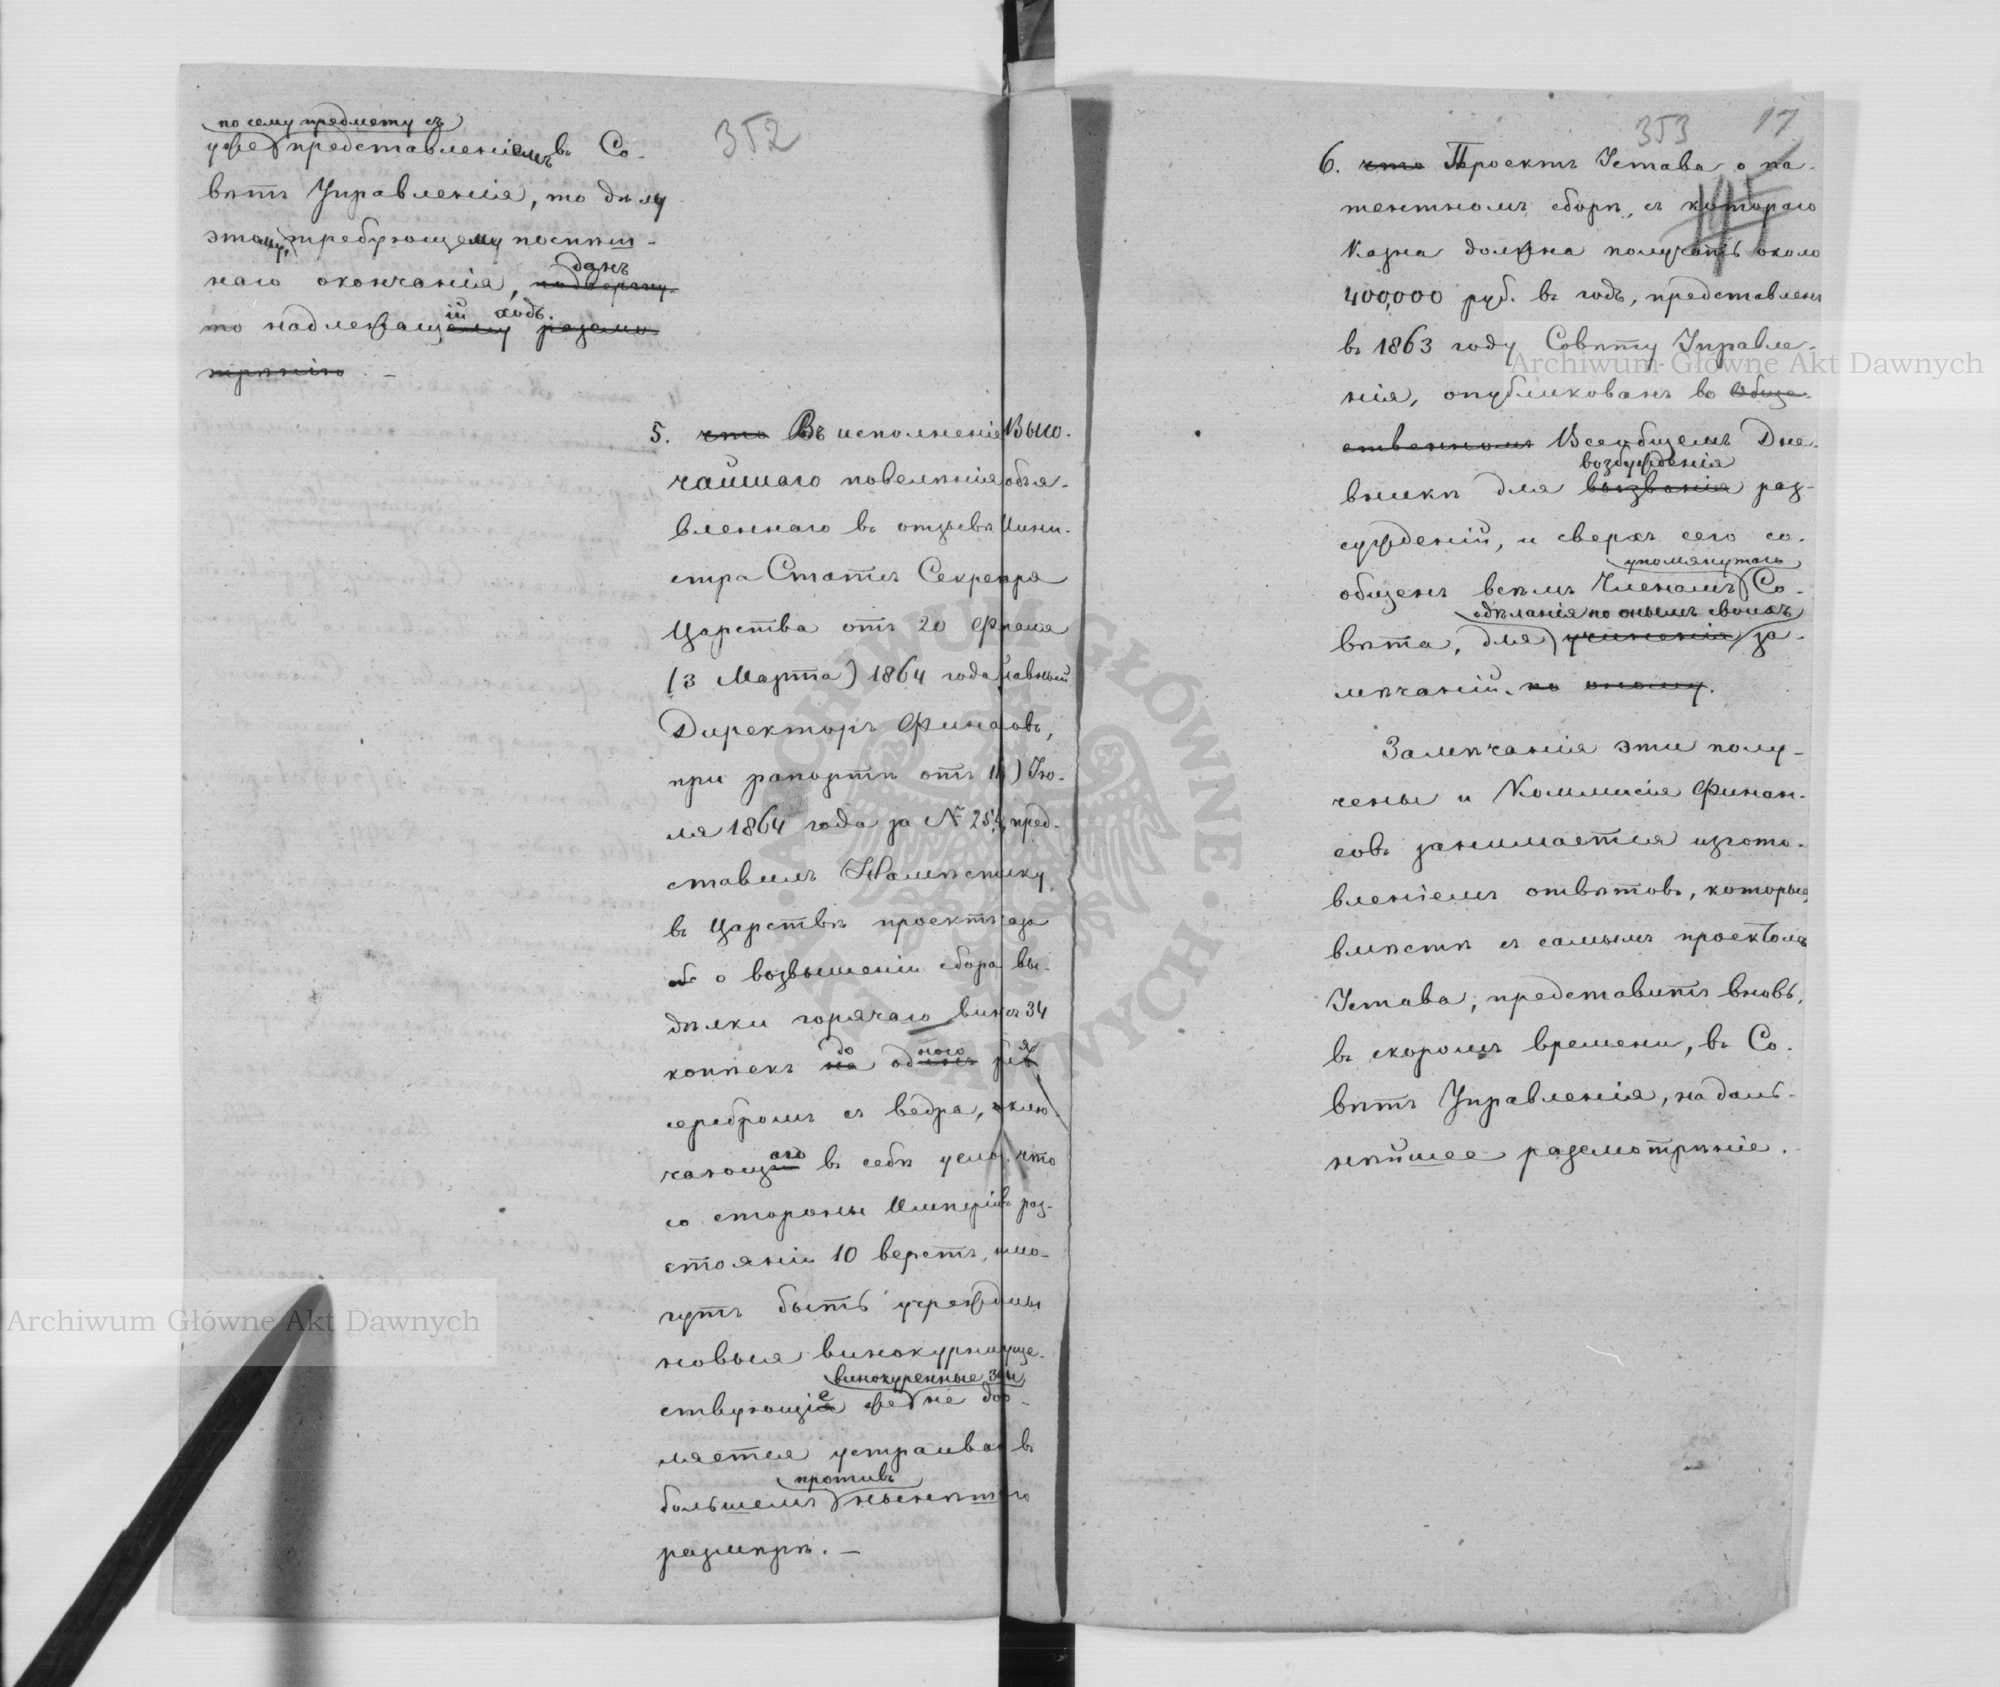 352
по сему предмету съ
уже представленіемъ въ Со-
вѣтъ Управленія, то дѣлу
этому, требующему поспѣш-
наго окончанія, данъ
подвергну-
то надлежащій ходъ.
разсмо
трѣнію —
5. что Въ исполненіе Высо-
чайшаго повелѣнія объя-
вленнаго въ отзывѣ Мини-
стра Статсъ Секретаря
Царства отъ 20 Февраля
(3 Марта) 1864 года Главный
Директоръ Финансовъ,
при рапортѣ отъ Iю-
ля 1864 года за № пред-
ставилъ Намѣстнику
въ Царствѣ проектъ указа
о возвышеніи сбора вы-
дѣлки горячаго вина съ 34
до ного я
копѣекъ на одинъ
серебромъ съ ведра, заклю-
чающаго въ себѣ что
со стороны Имперіи въ раз-
стояніи 10 верстъ, не мо-
гутъ быть учреждены
новыя винокурни суще-
винокуренные заводы
ствующіе же не дозво-
ляется устраивать въ
противъ
большемъ нынѣшняго
размѣрѣ. —
353 17
6. что Проектъ Устава о па-
тентномъ сборѣ, съ котораго
Казна должна получать около
400,000 руб. въ годъ, представленъ
въ 1863 году Совѣту Управле-
нія, опубликованъ во Обще-
ственномъ Всеобщемъ Дне-
возбужденія
вникѣ для вызванія раз-
сужденій, и сверхъ сего со-
упомянутаго
общенъ всѣмъ Членамъ Со-
сдѣланія по онымъ своихъ
вѣта, для учиненія за-
мѣчаній. по оному.
Замѣчанія эти полу-
чены и Коммисія Финан-
совъ занимается изгото-
вленіемъ отвѣтовъ, которые,
вмѣстѣ съ самымъ проектомъ
Устава, представитъ вновь,
въ скоромъ времени, въ Со-
вѣтъ Управленія, на даль-
нѣйшее разсмотрѣніе.
Archiwum Główne Akt Dawnych
Archiwum Główne Akt Dawnych
ARCHIWUM GŁÓWNE · AKT DAWNYCH ·